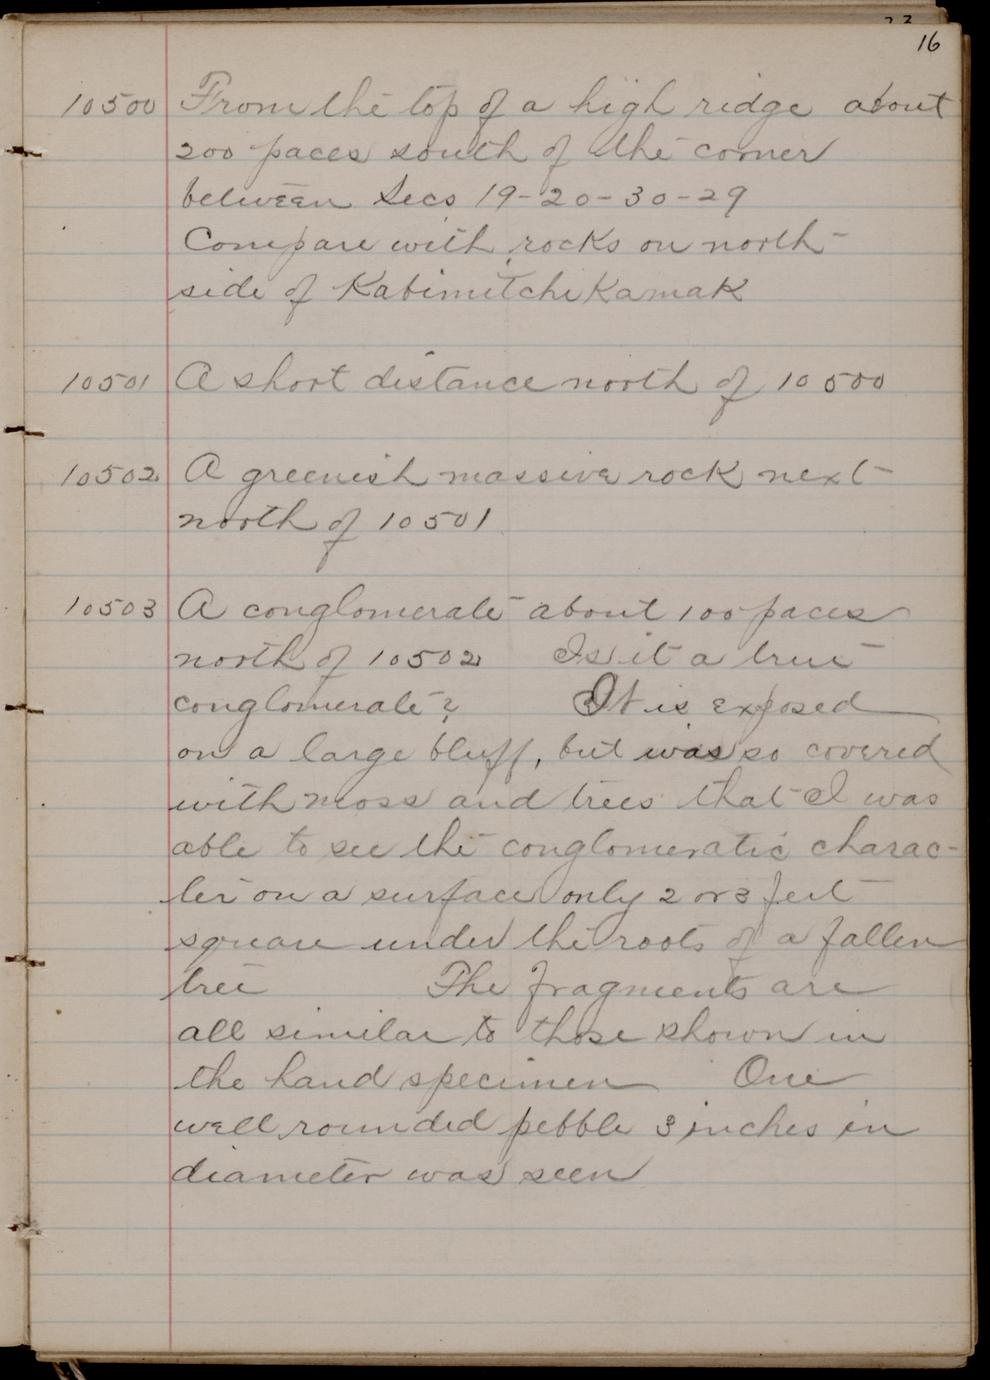 16
10500 From the top of a high ridge about
200 paces south of the corner
between Secs 19-20-30-29
Compare with rocks on north
side of Kabimitchikamak
10501 A short distance north of 10500
10502 A greenish massive rock next
north of 10501
10503 A conglomerate about 100 paces
north of 10502 Is it a true
conglomerate? It is exposed
on a large bluff, but was so covered
with moss and trees that I was
able to see the conglomeratic charac-
ter on a surface only 2 or 3 feet
square under the roots of a fallen
tree The fragments are
all similar to those shown in
the hand specimen One
well rounded pebble 3 inches in
diameter was seen